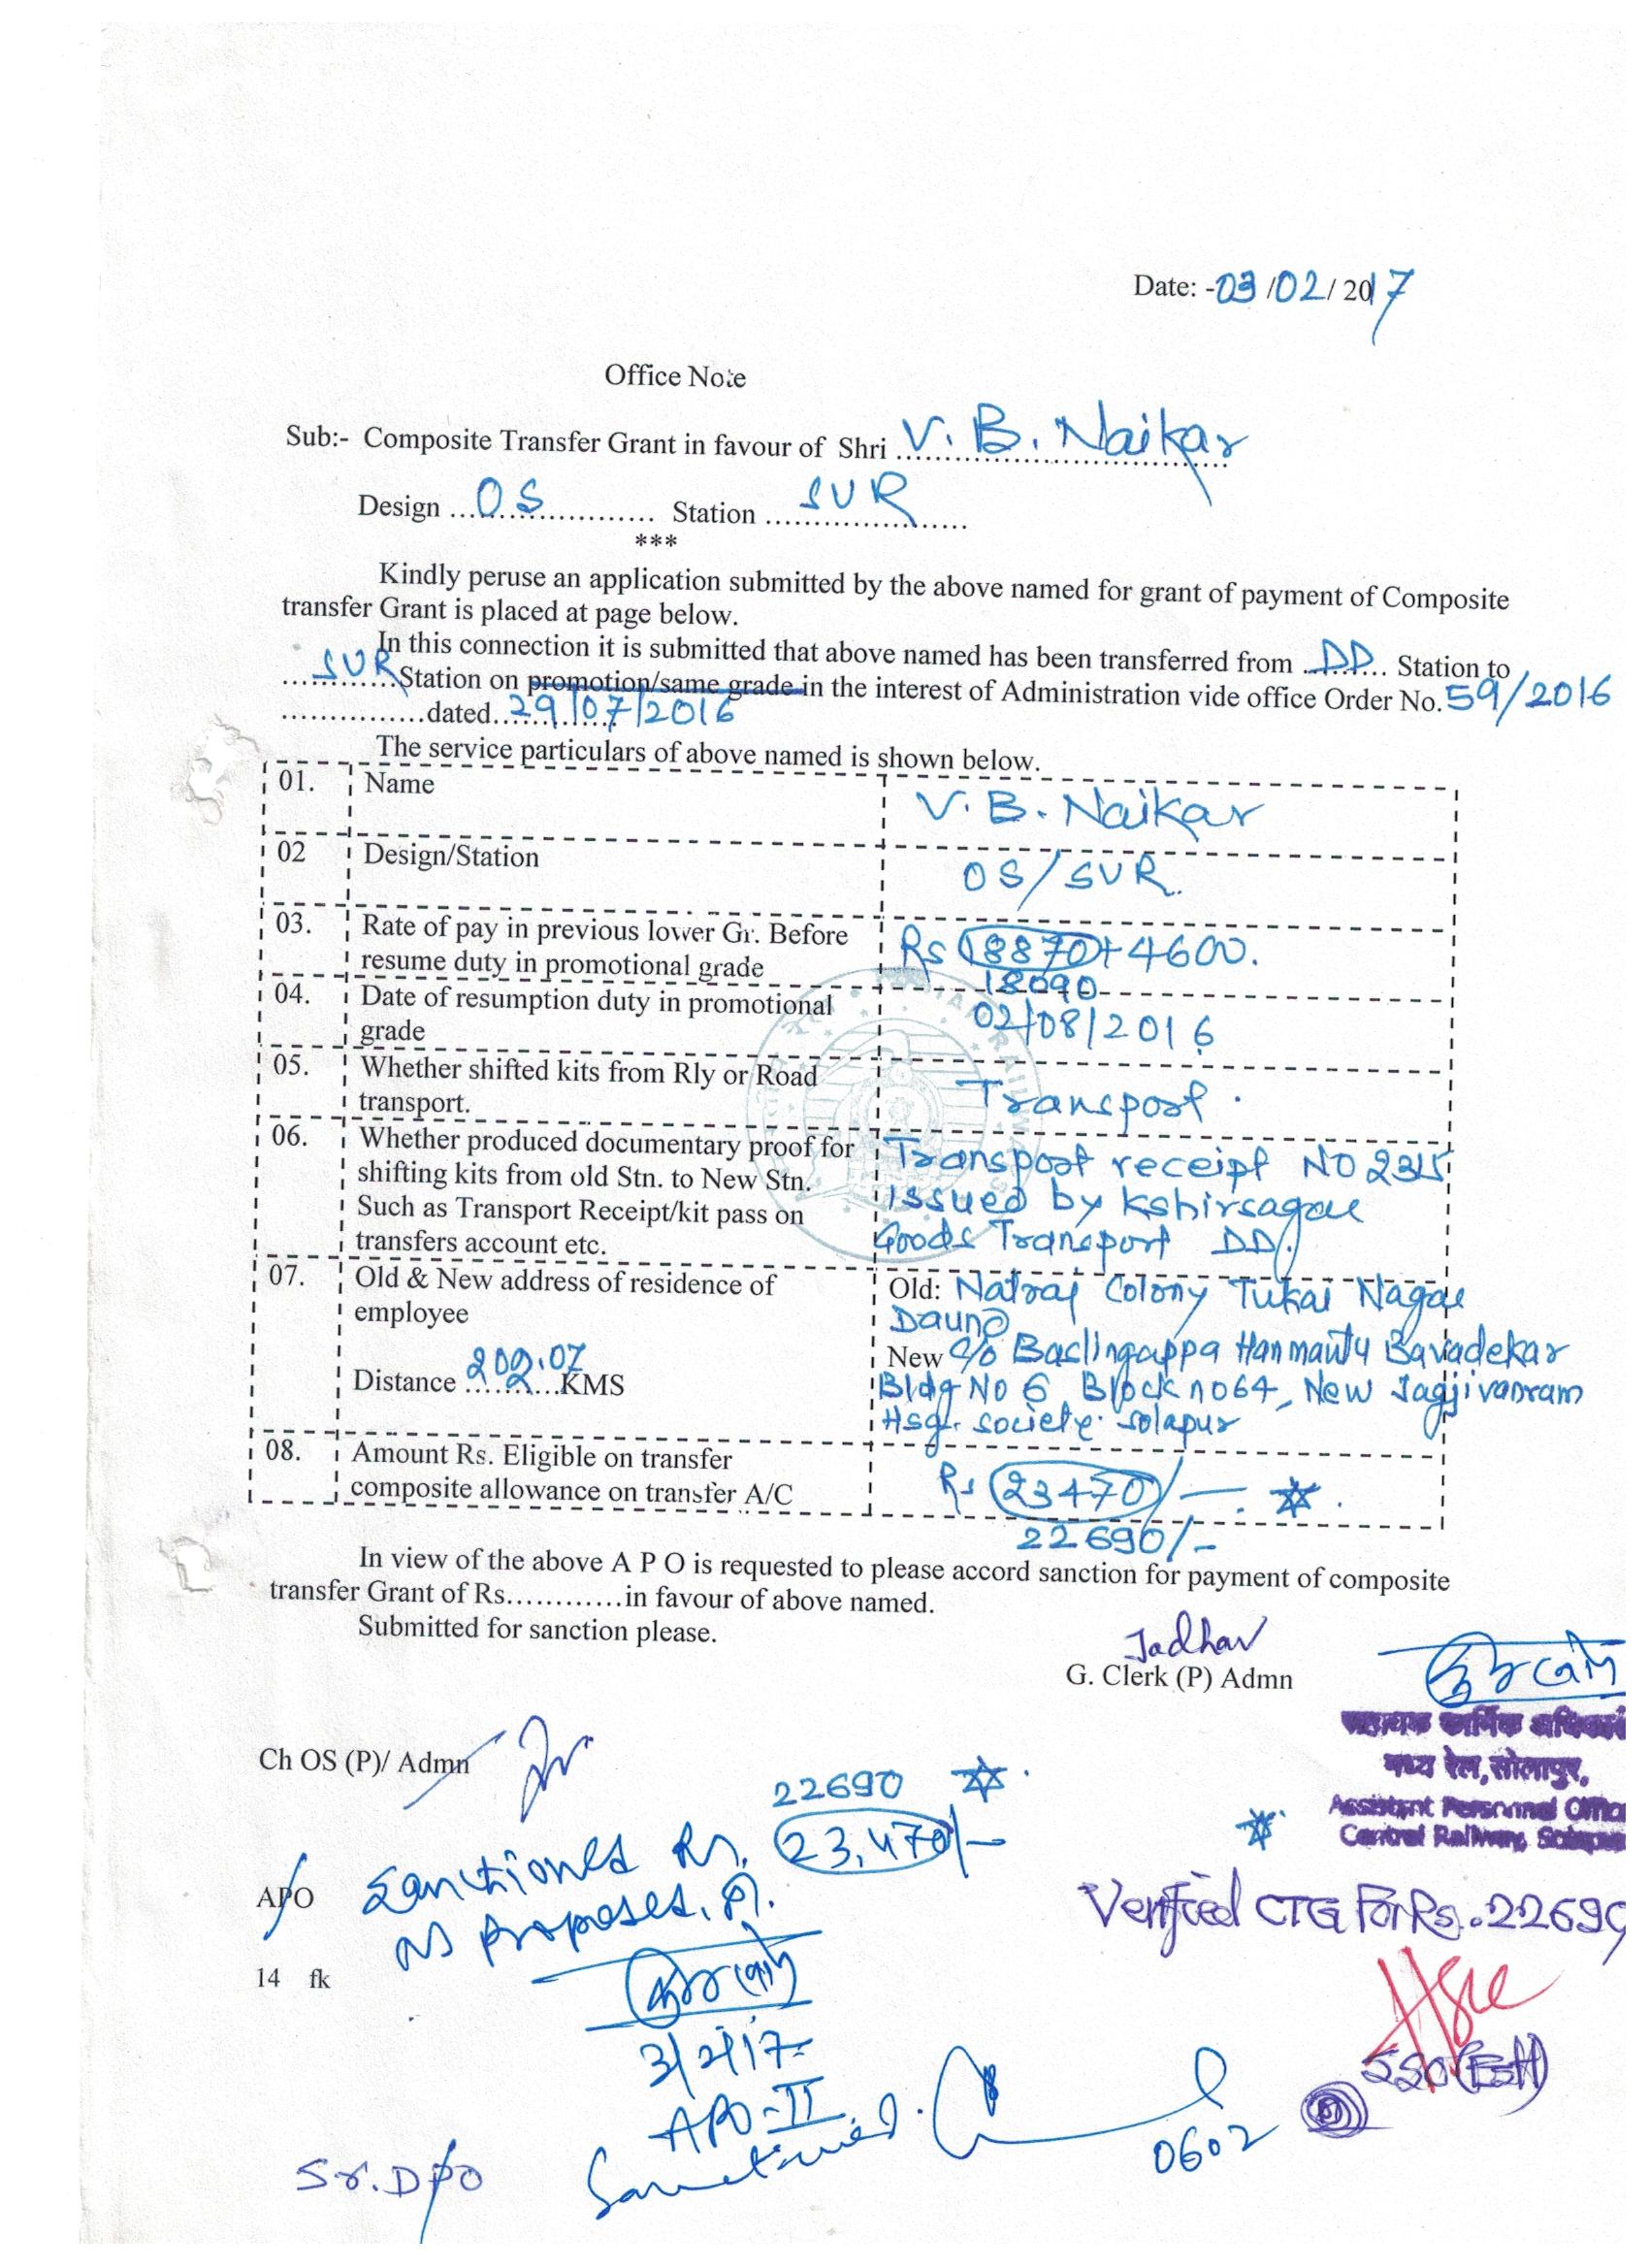 Date: -03/02/2017
Office Note
Sub:- Composite Transfer Grant in favour of Shri V. B. Naikar
Design ...OS.................... Station ...SUR...................
***
Kindly peruse an application submitted by the above named for grant of payment of Composite
transfer Grant is placed at page below.
In this connection it is submitted that above named has been transferred from ..DD... Station to
SUR Station on promotion/same grade in the interest of Administration vide office Order No. 59/2016
................dated..29/07/2016
The service particulars of above named is shown below.
01. Name V. B. Naikar
02 Design/Station OS/SUR.
03. Rate of pay in previous lower Gr. Before Rs 18870+4600.
resume duty in promotional grade 18090
04. Date of resumption duty in promotional 02/08/2016
grade
05. Whether shifted kits from Rly or Road Transport.
transport.
06. Whether produced documentary proof for Transport receipt NO 2315
shifting kits from old Stn. to New Stn. issued by Kshirsagar
Such as Transport Receipt/kit pass on Goods Transport DD.
transfers account etc.
07. Old & New address of residence of Old: Natraj Colony Tukai Nagar
employee Daund
New C/o Baslingappa Hanmantu Bavadekar
Distance 202.07 KMS Bldg No 6 Block no 64, New Jagjivanram
Hsg. Society. Solapur
08. Amount Rs. Eligible on transfer Rs 23470/-
composite allowance on transfer A/C 22690/-
In view of the above A P O is requested to please accord sanction for payment of composite
transfer Grant of Rs............in favour of above named.
Submitted for sanction please.
Jadhav
G. Clerk (P) Admn
सहायक कार्मिक अधिकारी
मध्य रेल, सोलापुर,
Assistant Personnel Office
Central Railway, Solapur
Ch OS (P)/ Admn
22690
Sanctioned Rs. 23,470/-
APO
as proposed, pl.
Verified CTG For Rs. 22690
14 fk
3/2/17
APO-II
SSO(Estt)
Sanctioned.
0602
Sr.DPO